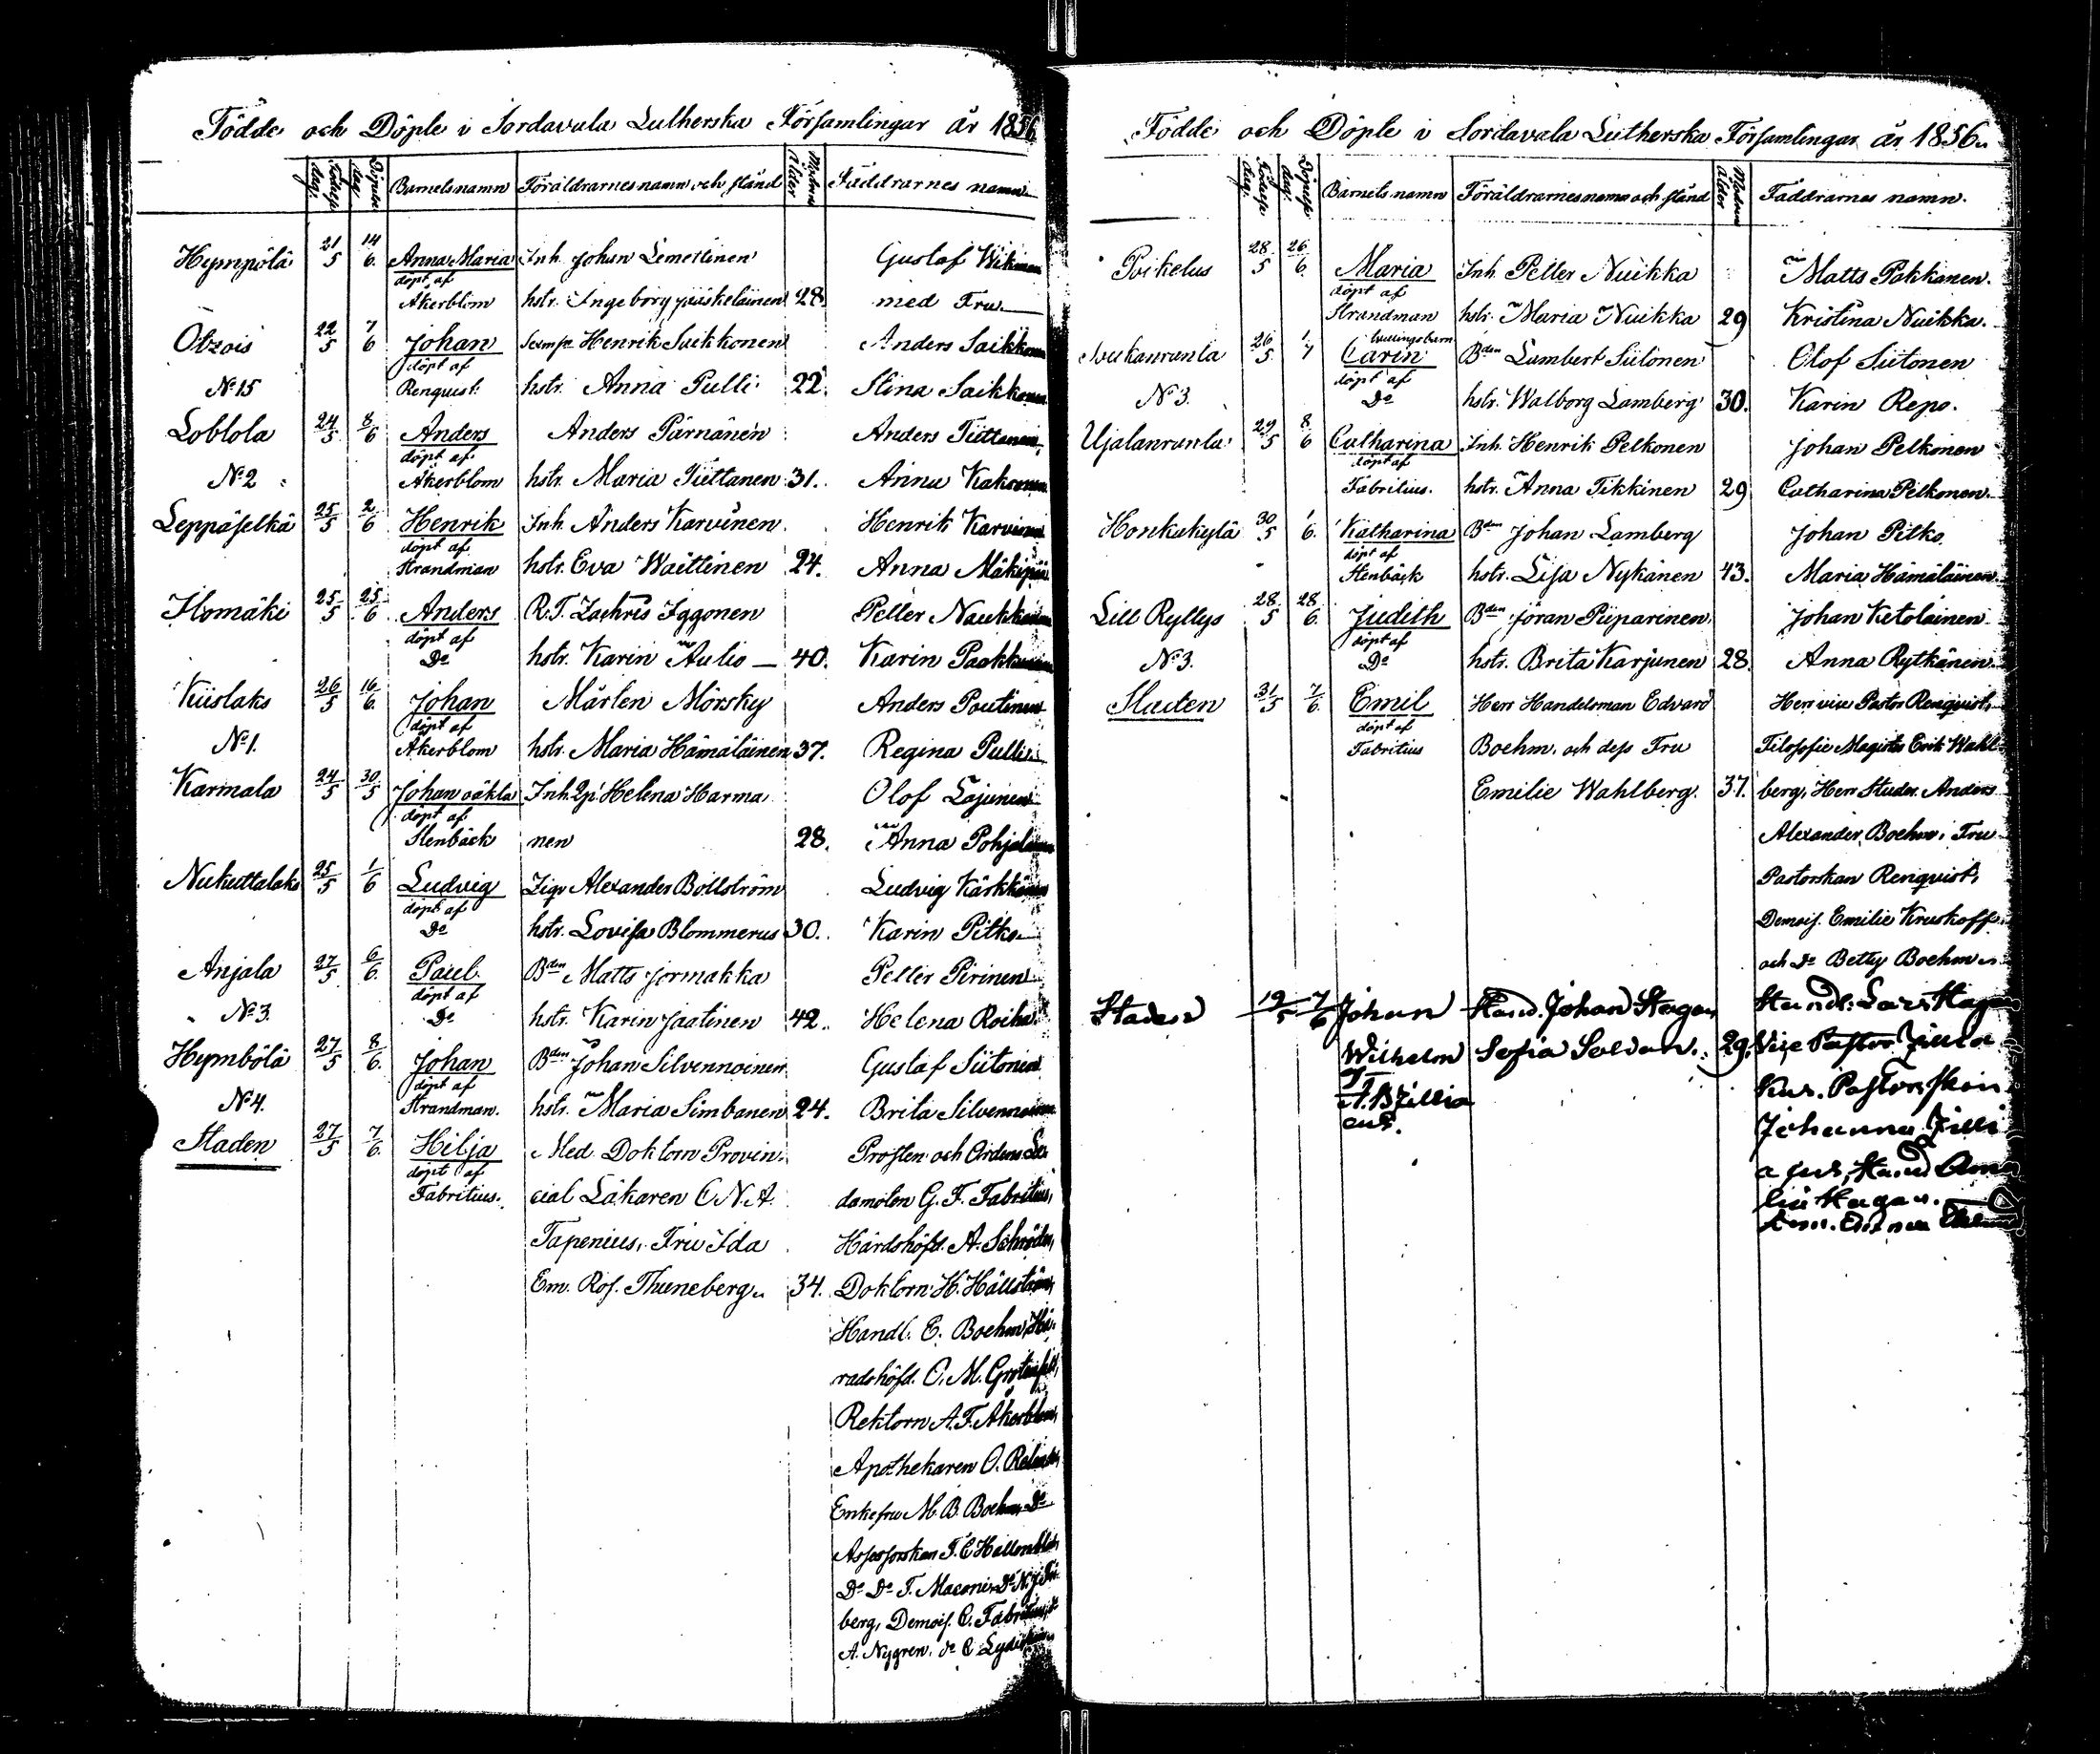 Födde och Döpte i Sordavala Lutherska Församlingar år 1856
Födelse dag. Döpelse dag. Barnets namn Föräldrarnes namn och stånd Modrens Ålder Faddrarnes namn
Hympölä 21/5 14/6. Anna Maria Inh. Johan Lemettinen Gustaf Wikman
döpt af
Åkerblom hstr. Ingeborg Jääskeläinen 28. med Fru.
Otzois 22/5 7/6 Johan Henrik Saikkonen Anders Saikkonen
döpt af
No 15 Renquist. hstr. Anna Pulli 22. Stina Saikkonen
Loblola 24/5 8/6 Anders Anders Pärnänen Anders Tiittanen
döpt af
No 2 Åkerblom hstr. Maria Tiittanen 31. Anna Kakonen
Leppäselkä 25/5 2/6 Henrik Inh. Anders Karvinen Henrik Karvinen
döpt af
Strandman hstr. Eva Waittinen 24. Anna Mäkipää
Ilomäki 25/5 25/6 Anders R.T. Zachris Iggonen Petter Naukkarinen
döpt af
Do hstr. Karin Aulio — 40. Karin Paakkunen
Kiislaks 26/5 16/6. Johan Mårten Mörsky Anders Poutinen
döpt af
No 1. Åkerblom hstr. Maria Hämäläinen 37. Regina Pulli.
Karmala 24/5 30/5 Johan oäkta Inh. Qp. Helena Harma Olof Lajunen
döpt af
Stenbäck nen 28. Anna Pohjalainen
Nukuttalaks 25/5 1/6 Ludvig Alexander Bollström Ludvig Kärkkäinen
döpt af
Do hstr. Lovisa Blommerus 30. Karin Pitko
Anjala 27/5 6/6. Paul Bden Matts Jormakka Petter Pirinen
döpt af
No 3. Do hstr. Karin Jaatinen 42. Helena Roiha
Hymbölä 27/5 8/6. Johan Bden Johan Silvennoinen Gustaf Siitonen
döpt af
No 4. Strandman. hstr. Maria Simbanen 24. Brita Silvennoinen
Staden 27/5 7/6. Hilja Med. Doktorn Provin- Prosten och Ordens Le-
döpt af
Fabritius. cial Läkaren C.N.A. damoten G. F. Fabritius,
Tapenius, Fru Ida Häradshöfd. A. Schröder,
Em. Ros. Thuneberg. 34. Doktorn H. Hällström,
Handl. E. Boehm, Hä-
radshöfd. O. M. Grotenfelt,
Rektorn A. F. Åkerblom,
Apothekaren O. Relander,
Enkefru M. B. Boehm, Do
Assessorskan F. C. Hallonblad,
Do Do F. Do N. J.
berg, Demois. C. Fabritius, do
A. Nygren, do C.
Födde och Döpte i Sordavala Lutherska Församlingar år 1856.
Födelse dag. Döpelse dag. Barnets namn Föräldrarnes namn och stånd Modrens Ålder Faddrarnes namn.
Poikelus 28/5 26/6. Maria Inh. Petter Nuikka Matts Pakkanen.
döpt af
Strandman hstr. Maria Nuikka 29 Kristina Nuikka.
tvillingsbarn
26/5. 1/7 Carin Bden Lambert Siitonen Olof Siitonen
döpt af
No 3. Do hstr. Walborg Lamberg 30. Karin Repo.
Ujalanranta 29/5 8/6 Catharina Inh. Henrik Pelkonen Johan Pelkonen
döpt af
Fabritius. hstr. Anna Tikkinen 29 Catharina Pelkonen.
Honkakylä 30/5 1/6. Katharina Bden Johan Lamberg Johan Pitko
döpt af
Stenbäck hstr. Lisa Nykänen 43. Maria Hämäläinen
Lill Ryttys 28/5 28/6. Judith Bden Jöran Piiparinen Johan Ketolainen
döpt af
No 3. Do hstr. Brita Karjunen 28. Anna Rytkönen
Staden 31/5 7/6. Emil Herr Handelsman Edvard Herr vice Pastor Renqvist,
döpt af
Fabritius Boehm, och dess Fru Filosofie Magister Erik Wahl-
Emilie Wahlberg. 37. berg, Herr Studer. Anders
Alexander Boehm, Fru
Pastorskan Renqvist,
Demois. Emilie Kruskopf
och Do Betty Boehm.
Staden 19/5 7/6 Johan Hand. Johan Hagan Handl. Lars Hagan
Wilhelm Sofia Soldan. 29. Vice Pastor Zillia
Kus. Pastorskan
A. B Zillia Johanna Zilli
cus. a cus, Hand Ama
lia Hagan.